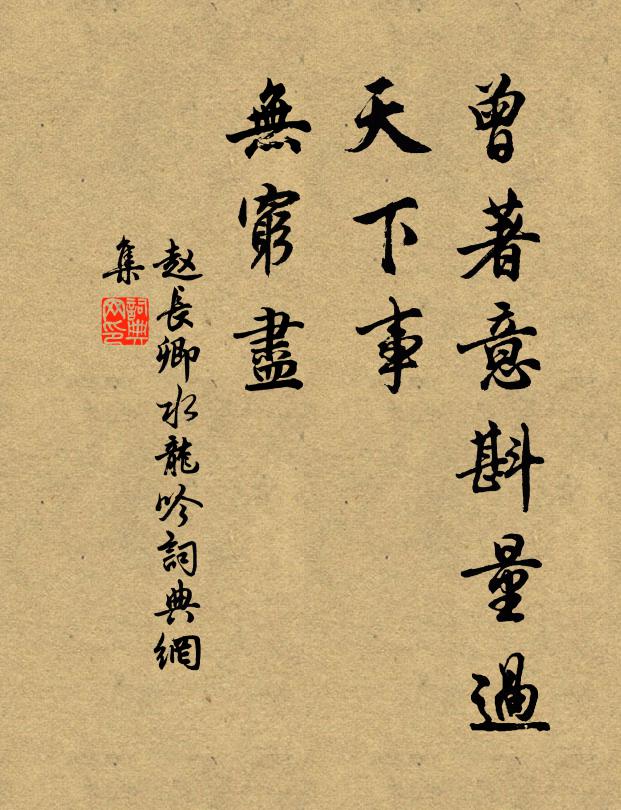 曾著意斟量過
天下事
無窮盡
赵長卿水龍吟詞典網
集
詞典
网印